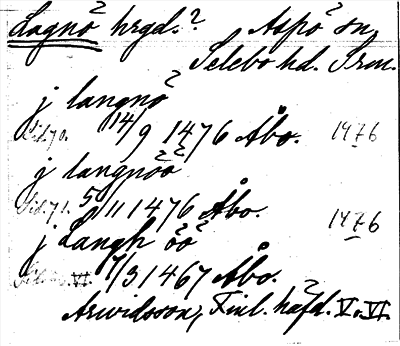 Lagnö hrgd.? Aspö sn,
Selebo hd. Srm.
j langnö
Sid. 70. 14/9 1476 Åbo. 1476
j langnöö
Sid. 71. 5/11 1476 Åbo.
j Langh öö 1476
/3 1467 Åbo.
Arwidsson, Finl. häfd. V. VI.